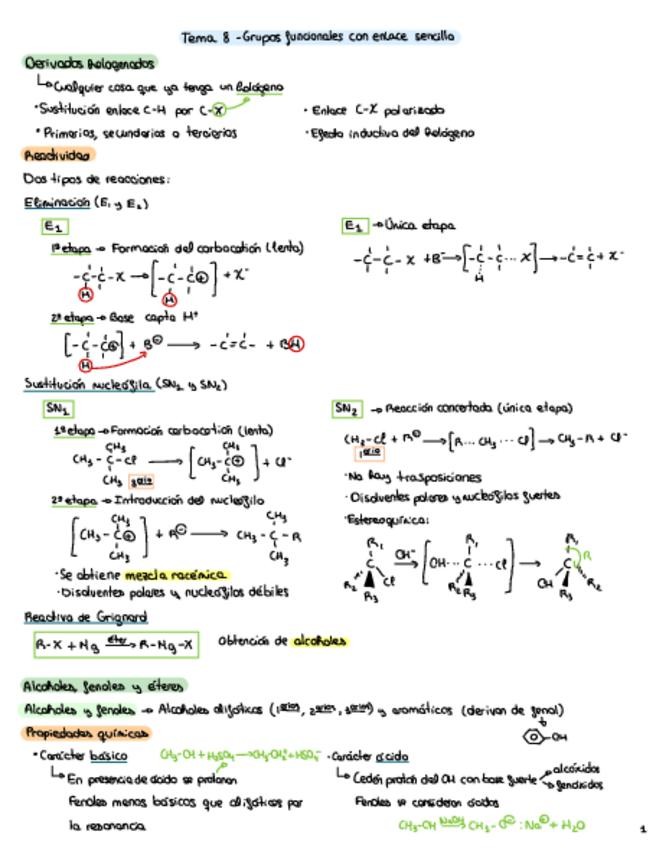 Tema 8 - Grupos funcionales con enlace sencillo
Derivados halogenados
↳ Cualquier cosa que ya tenga un halógeno
· Sustitución enlace C-H por C-X
· Enlace C-X polarizado
· Primarios, secundarios o terciarios
· Efecto inductivo del halógeno
Reactividad
Dos tipos de reacciones:
Eliminación (E₁ y E₂)
E₁
1ª etapa → Formación del carbocatión (lenta)
-C-C-X → [-C-C⊕] + X⁻
H H
2ª etapa → Base capta H⁺
[-C-C⊕] + B⊖ → -C=C- + BH
H
E₁ → Única etapa
-C-C-X + B⁻ → [-C-C···X] → -C=C + X⁻
H
Sustitución nucleófila (SN₁ y SN₂)
SN₁
1ª etapa → Formación carbocatión (lenta)
CH₃ CH₃
CH₃-C-Cl → [CH₃-C⊕] + Cl⁻
CH₃ 3ario CH₃
2ª etapa → Introducción del nucleófilo
CH₃ CH₃
[CH₃-C⊕] + R⊖ → CH₃-C-R
CH₃ CH₃
· Se obtiene mezcla racémica
· Disolventes polares y nucleófilos débiles
SN₂ → Reacción concertada (única etapa)
CH₃-Cl + R⊖ → [R···CH₃···Cl] → CH₃-R + Cl⁻
1ario
· No hay trasposiciones
· Disolventes polares y nucleófilos fuertes
· Estereoquímica:
R₁ OH⁻ R₁ R₁ R
C Cl → [OH···C···Cl] → C
R₂ R₃ R₂ R₃ OH R₃ R₂
Reactivo de Grignard
R-X + Mg éter→ R-Mg-X
Obtención de alcoholes
Alcoholes, fenoles y éteres
Alcoholes y fenoles → Alcoholes alifáticos (1arios, 2arios, 3arios) y aromáticos (derivan de fenol)
-OH
Propiedades químicas
· Carácter básico CH₃-OH + H₂SO₄ → CH₃-OH₂⁺ + HSO₄⁻
↳ En presencia de ácido se protonan
Fenoles menos básicos que alifáticos por
la resonancia
· Carácter ácido
↳ Ceden protón del OH con base fuerte
alcóxidos
fenóxidos
Fenoles se consideran ácidos
CH₃-OH NaOH→ CH₃-O⊖ : Na⊕ + H₂O
1